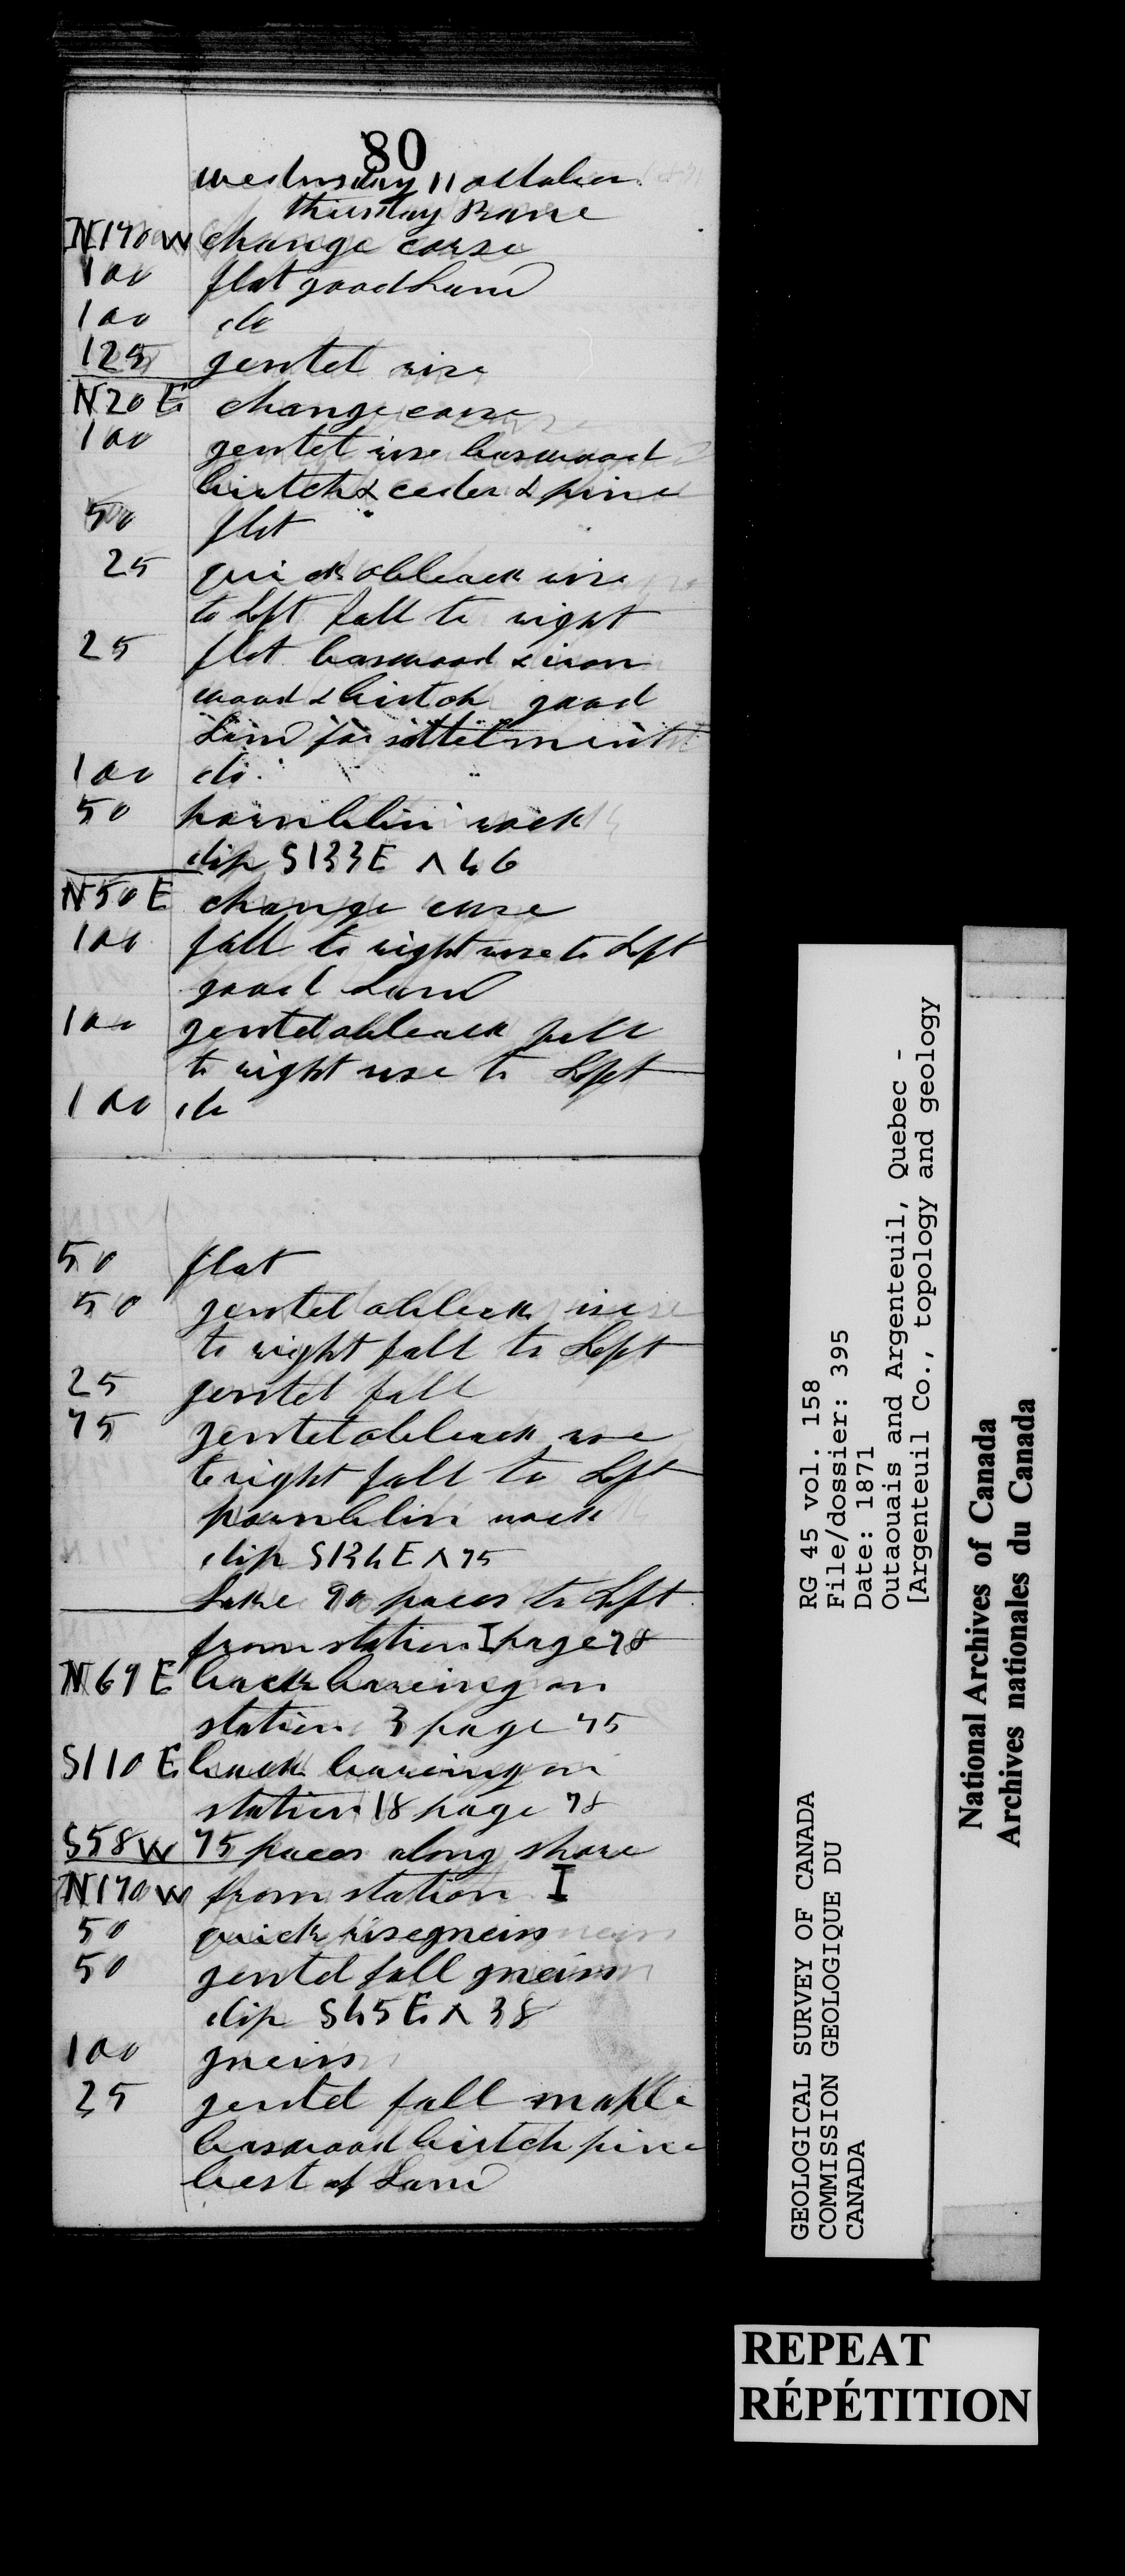 80
wednsday 11 octtober
thirsday Rane
N170W change corse
100 flat good Land
100 do
125 gentel rise
N20E change corse
100 gentel rise baswood
birtch & ceder & pine
50 flat
25 quick obleack rise
to Left fall to right
25 flat baswood & iron
wood & birtch good
Land for settelment
100 do
50 hornblin rock
dip S133E ^ 46
N50E change corse
100 fall to right rose to Left
good Land
100 gentel obleack fall
to right rise to Left
100 do
50 flat
50 gentel obleack rise
to right fall to Left
25 gentel fall
75 gentel obleack rise
to right fall to Left
hornblin rock
dip S134E ^ 75
Lake 90 paces to Left
from station I page 78
N69E back bareing on
station 3 page 75
S110E back bareing on
station 18 page 78
S58W 75 paces along shore
N170W from station I
50 quick rise gneiss
50 gentel fall gneiss
dip S45E ^ 38
100 gneiss
25 gentel fall maple
baswood birtch pine
best of Land
RG 45 vol. 158
File/dossier: 395
Date: 1871
Outaouais and Argenteuil, Quebec -
[Argenteuil Co., topology and geology
GEOLOGICAL SURVEY OF CANADA
COMMISSION GEOLOGIQUE DU
CANADA
National Archives of Canada
Archives nationales du Canada
REPEAT
RÉPÉTITION